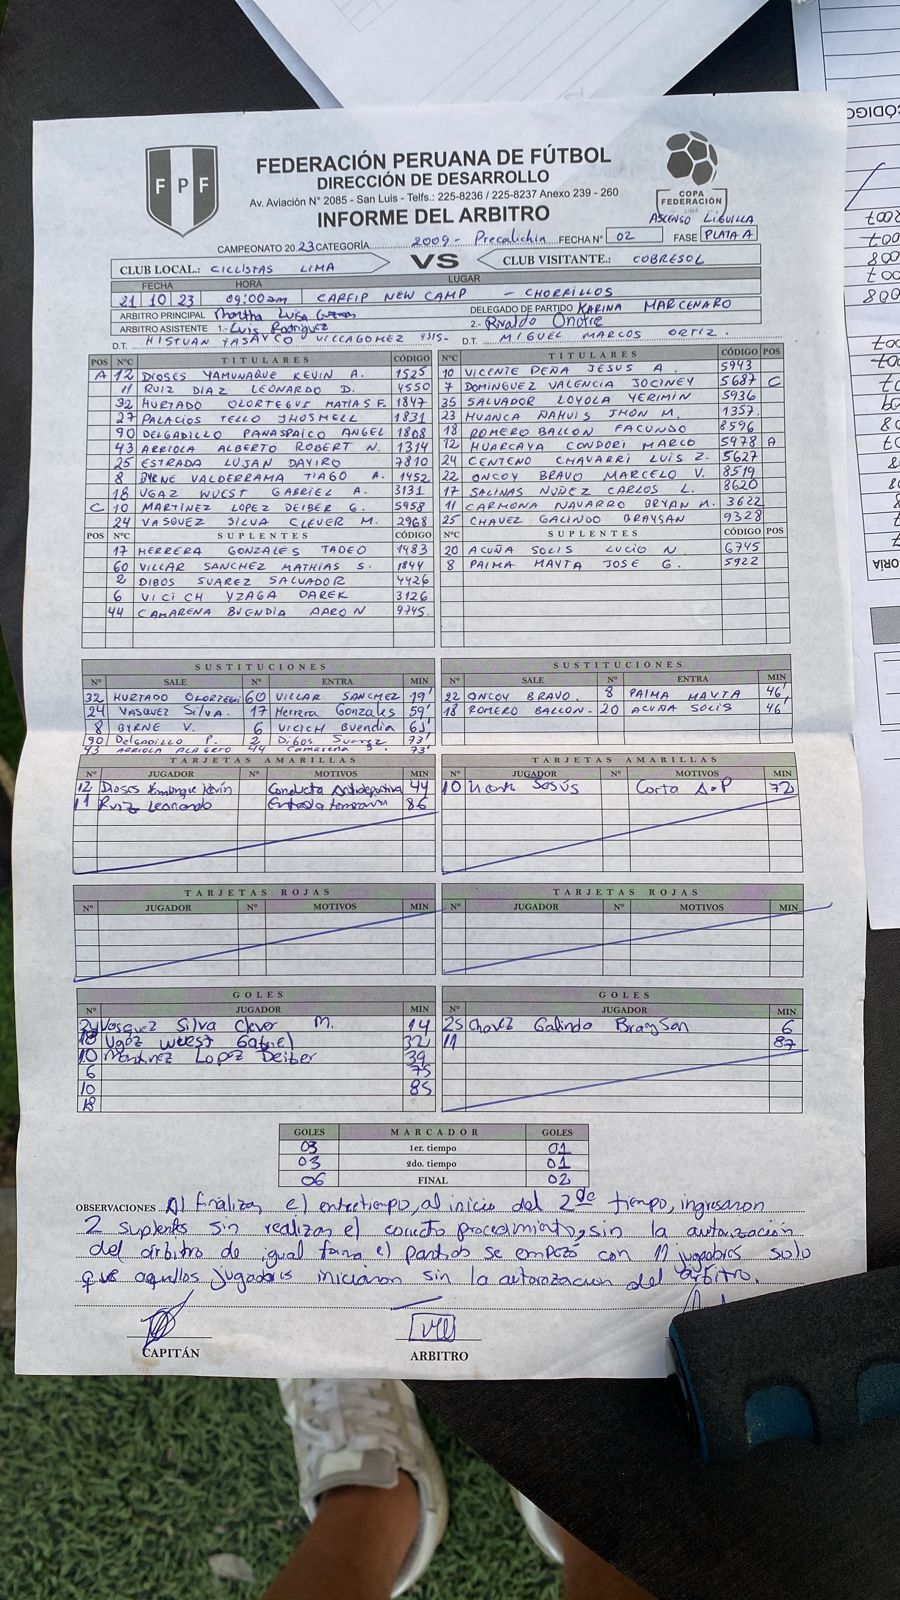 FPF
FEDERACIÓN PERUANA DE FÚTBOL
DIRECCIÓN DE DESARROLLO
Av. Aviación N° 2085 - San Luis - Telfs.: 225-8236 / 225-8237 Anexo 239 - 260
INFORME DEL ARBITRO
COPA
FEDERACIÓN
LIMA
ASCENSO LIGUILLA
CAMPEONATO 20.23 CATEGORÍA 2009 - Precalichin FECHA N° 02 FASE PLATA A
CLUB LOCAL.: CICLISTAS LIMA VS CLUB VISITANTE.: COBRESOL
FECHA HORA LUGAR
21 10 23 09:00am CAREIP NEW CAMP - CHORRILLOS
ARBITRO PRINCIPAL Martha Luisa DELEGADO DE PARTIDO KARINA MARCENARO
ARBITRO ASISTENTE 1.- Luis Rodriguez 2.- Rivaldo Onofre
D.T. HISTUAN YASAYCO VILLAGOMEZ D.T. MIGUEL MARCOS ORTIZ.
POS N°C TITULARES CÓDIGO N°C TITULARES CÓDIGO POS
A 12 DIOSES YAMUNAQUE KEVIN A. 1525 10 VICENTE PEÑA JESUS A. 5943
11 RUIZ DIAZ LEONARDO D. 4550 7 DOMINGUEZ VALENCIA JOCINEY 5687 C
32 HURTADO OLORTEGUI MATIAS F. 1847 35 SALVADOR LOYOLA YERIMIN 5936
27 PALACIOS TELLO JHOSMELL 1831 23 HUANCA ÑAHUIS JHON M. 1357
90 DELGADILLO PANASPAICO ANGEL 1808 18 ROMERO BALLON FACUNDO 8596
43 ARRIOLA ALBERTO ROBERT N. 1314 12 HUARCAYA CONDORI MARCO 5978 A
25 ESTRADA LUJAN DAYIRO 7810 24 CENTENO CHAVARRI LUIS Z. 5627
8 BYRNE VALDERRAMA TIAGO A. 1452 22 ONCOY BRAVO MARCELO V. 8519
18 UGAZ WUEST GABRIEL A. 3131 17 SALINAS NUÑEZ CARLOS L. 8620
C 10 MARTINEZ LOPEZ DEIBER G. 5958 11 CARMONA NAVARRO BRYAN M. 3622
24 VASQUEZ SILVA CLEVER M. 2968 25 CHAVEZ GALINDO BRAYSAN 9328
POS N°C SUPLENTES CÓDIGO N°C SUPLENTES CÓDIGO POS
17 HERRERA GONZALES TADEO 1483 20 ACUÑA SOLIS LUCIO N. 6745
60 VILLAR SANCHEZ MATHIAS S. 1844 8 PAIMA MAYTA JOSE G. 5922
2 DIBOS SUAREZ SALVADOR 4426
6 VICICH YZAGA DAREK 3126
44 CAMARENA BUENDIA AARON 9745
SUSTITUCIONES SUSTITUCIONES
N° SALE N° ENTRA MIN N° SALE N° ENTRA MIN
32 HURTADO OLORTEGUI 60 VILLAR SANCHEZ 19' 22 ONCOY BRAVO. 8 PAIMA MAYTA 46'
24 VASQUEZ SILVA. 17 Herrera Gonzales 59' 18 ROMERO BALLON. 20 ACUÑA SOLIS 46'
8 BYRNE V. 6 VICICH Buendia
90 Delgadillo P. 2 Dibos Suarez 73'
43 ARRIOLA 44 Camarena 73'
TARJETAS AMARILLAS TARJETAS AMARILLAS
N° JUGADOR N° MOTIVOS MIN N° JUGADOR N° MOTIVOS MIN
12 Dioses Kevin Conducta Antideportiva 44 10 Jesús Corta A.P 72
11 Ruiz Leonardo Entrada temeraria 86
TARJETAS ROJAS TARJETAS ROJAS
N° JUGADOR N° MOTIVOS MIN N° JUGADOR N° MOTIVOS MIN
GOLES GOLES
N° JUGADOR MIN N° JUGADOR MIN
24 Vasquez Silva Clever M. 14 25 Chavez Galindo Brayson 6
18 Ugaz Wuest Gabriel 32 11 87
10 Martinez Lopez Deiber 39
6 75
10 85
18
GOLES MARCADOR GOLES
03 1er. tiempo 01
03 2do. tiempo 01
06 FINAL 02
OBSERVACIONES Al finalizar el entretiempo, al inicio del 2do tiempo, ingresaron
2 suplentes sin realizar el correcto procedimiento, sin la autorización
del arbitro de igual forma el partido se empezó con 11 jugadores solo
que aquellos jugadores iniciaron sin la autorizacion del arbitro.
CAPITÁN ARBITRO